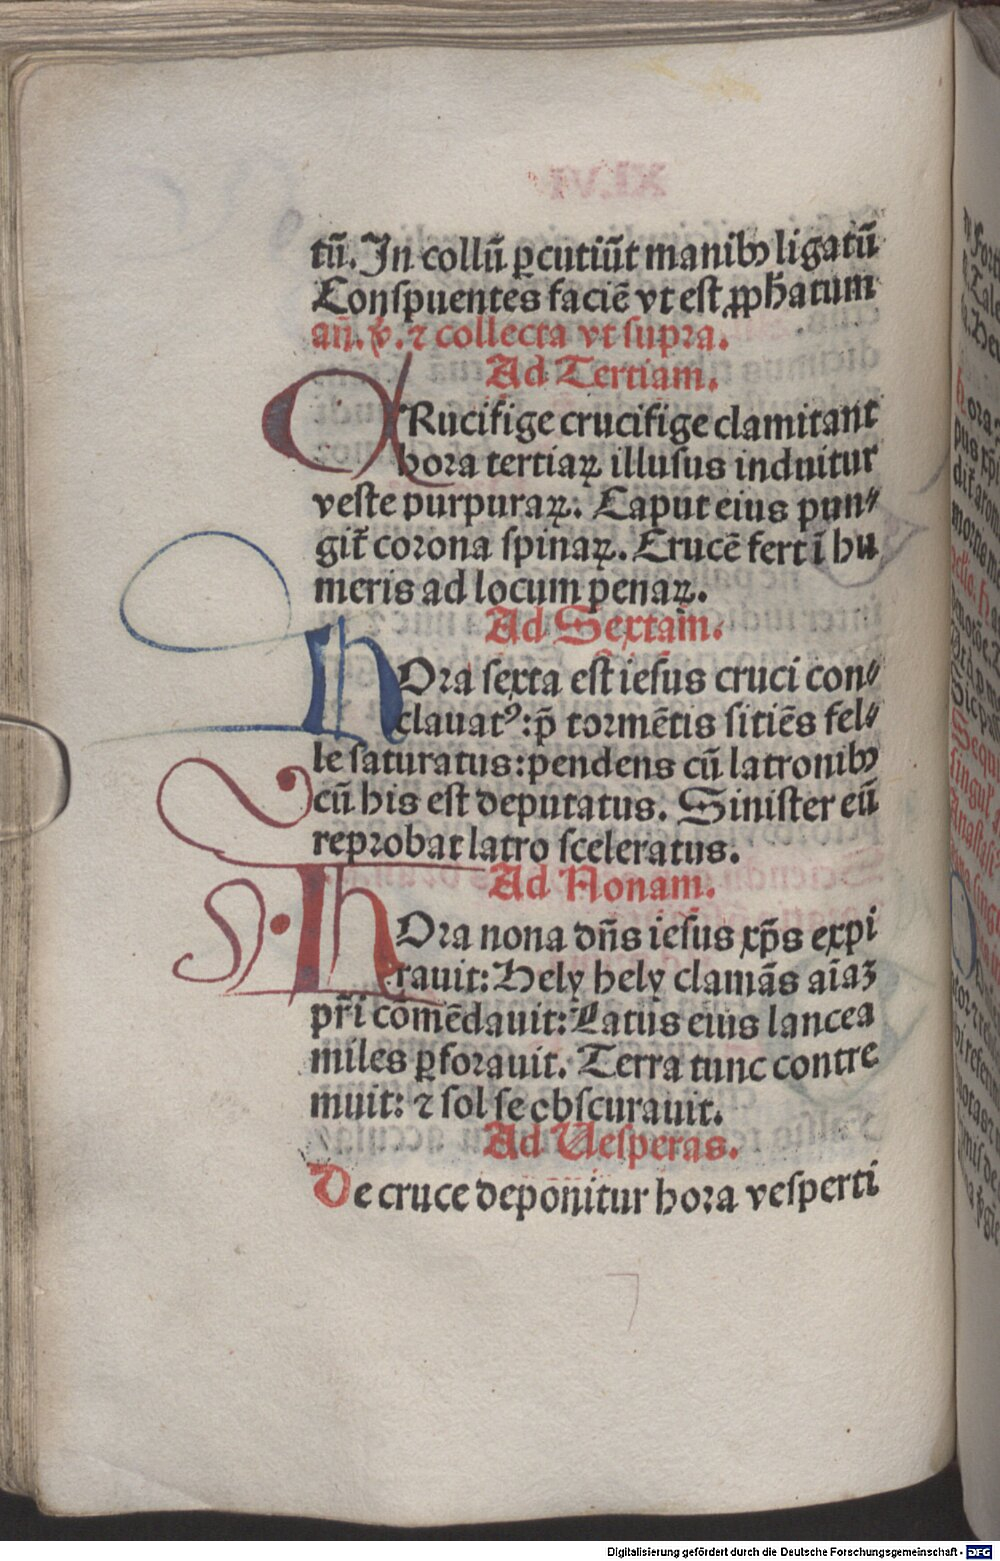 tū. In collū ꝑcutiūt manibꝫ ligatū
Conspuentes faciē vt est ꝓphatum
an̄. v̄. ⁊ collecta vt supra.
Ad Tertiam.
CRucifige crucifige clamitant
hora tertiaꝝ illusus induitur
veste purpuraꝝ: Caput eius pun⸗
git̄ corona spinaꝝ. Crucē fert ī hu
meris ad locum penaꝝ.
Ad Sextam.
hOra sexta est iesus cruci con⸗
clauatꝰ: p̄ tormētis sitiēs fel⸗
le saturatus: pendens cū latronibꝫ
cū his est deputatus. Sinister eū
reprobat latro sceleratus.
Ad Nonam.
hOra nona dn̄s iesus xp̄s expi
rauit: Hely hely clamās aīaꝫ
pr̄i comēdauit: Latus eius lancea
miles ꝑforauit. Terra tunc contre
muit: ⁊ sol se obscurauit.
Ad Vesperas.
De cruce deponitur hora vesperti
Digitalisierung gefördert durch die Deutsche Forschungsgemeinschaft - DFG